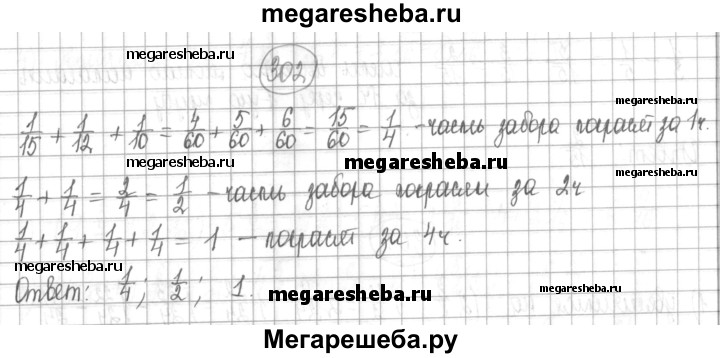 megaresheba.ru
megaresheba.ru megaresheba.ru
302
1/15 + 1/12 + 1/10 = 4/60 + 5/60 + 6/60 = 15/60 = 1/4 - часть забора покрасят за 1ч.
megaresheba.ru
megaresheba.ru megaresheba.ru megaresheba.ru
1/4 + 1/4 = 2/4 = 1/2 - часть забора покрасли за 2ч
1/4 + 1/4 + 1/4 + 1/4 = 1 - покрасят за 4ч.
megaresheba.ru megaresheba.ru
Ответ: 1/4; 1/2; 1.
megaresheba.ru megaresheba.ru
Мегарешеба.ру